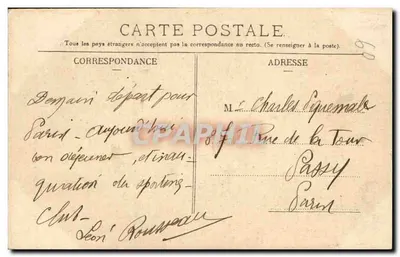 CARTE POSTALE
Tous les pays étrangers n'acceptent pas la correspondance au recto. (Se renseigner à la poste).
CORRESPONDANCE
ADRESSE
60
Demain départ pour
Paris - aujourd'hui
bon déjeuner, d'inau-
guration du sporting
Club -
Léon Rousseau
Mr Charles
Rue de la Tour
Passy
Paris
CPAPHIL